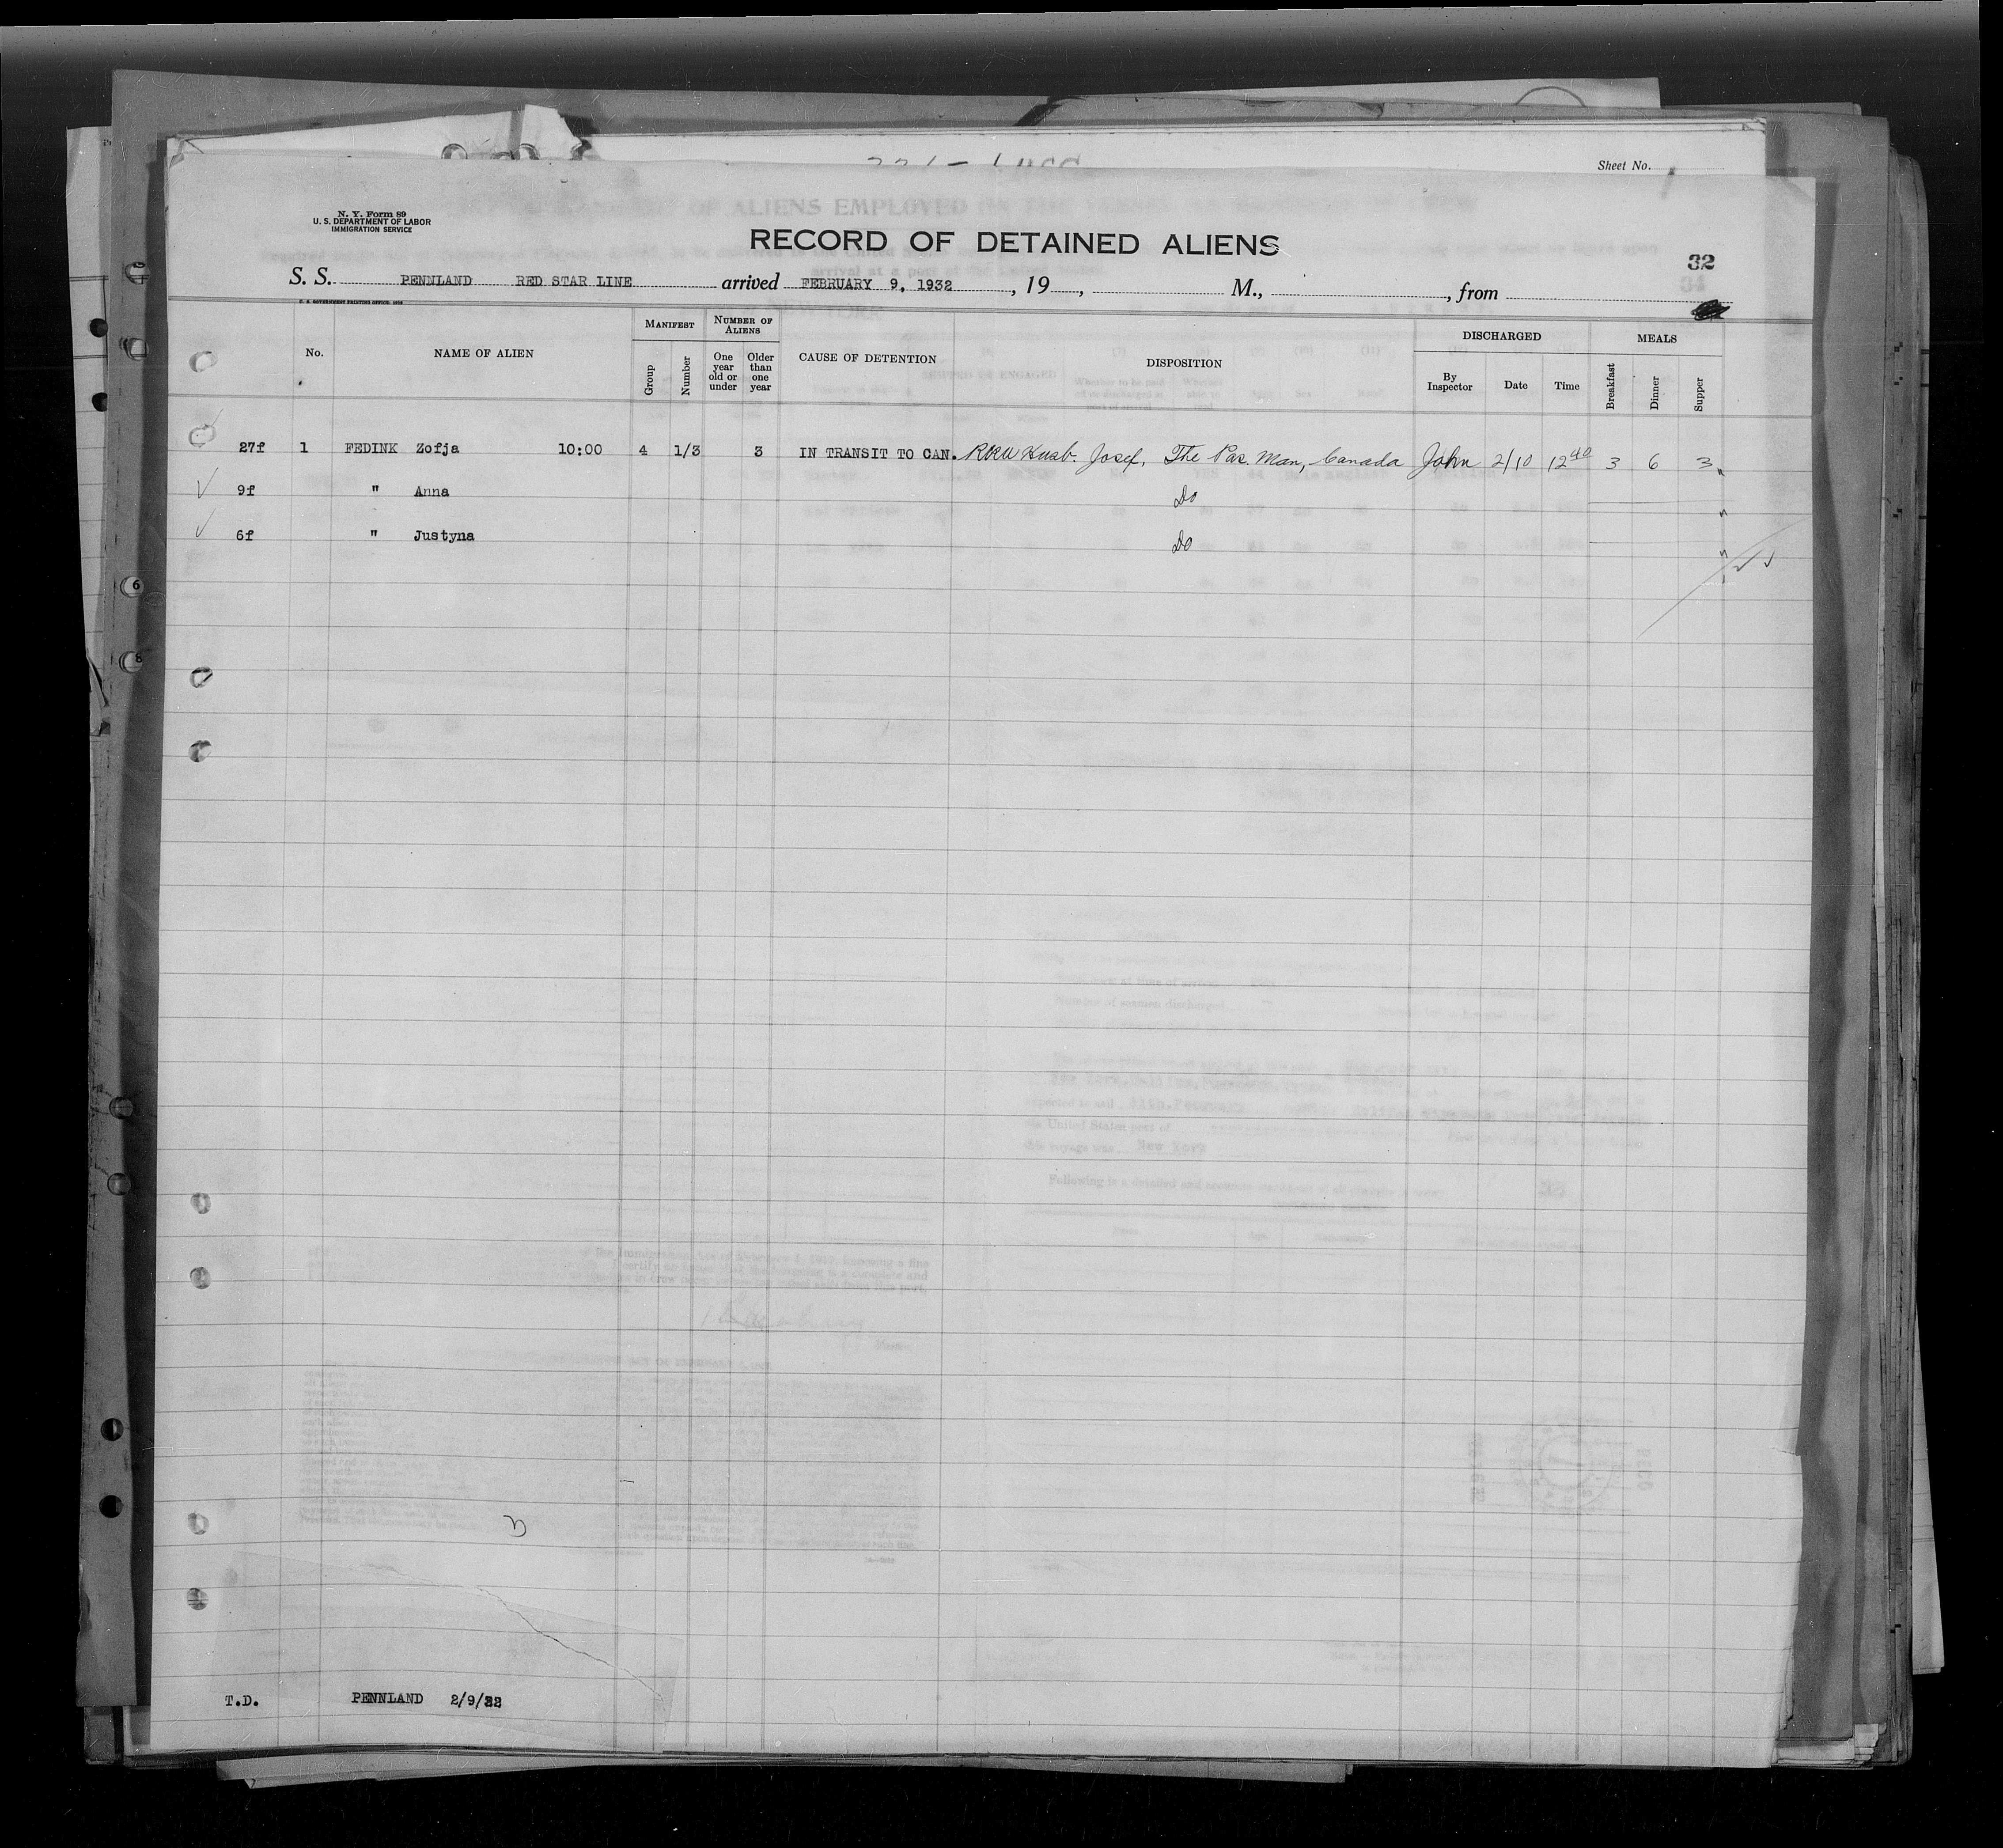 Sheet No. 1
N. Y. Form 89
U. S. DEPARTMENT OF LABOR
IMMIGRATION SERVICE
RECORD OF DETAINED ALIENS
32
S. S. PENNLAND RED STAR LINE arrived FEBRUARY 9, 1932, 19 , M., , from
U. S. GOVERNMENT PRINTING OFFICE
No. NAME OF ALIEN MANIFEST Group Number NUMBER OF ALIENS One year old or under Older than one year CAUSE OF DETENTION DISPOSITION DISCHARGED By Inspector Date Time MEALS Breakfast Dinner Supper
27f 1 FEDINK Zofja 10:00 4 1/3 3 IN TRANSIT TO CAN. Husb. Josef, The Pas. Man, Canada John 2/10 12 40 3 6 3
9f " Anna Do
6f " Justyna Do
T.D. PENNLAND 2/9/32